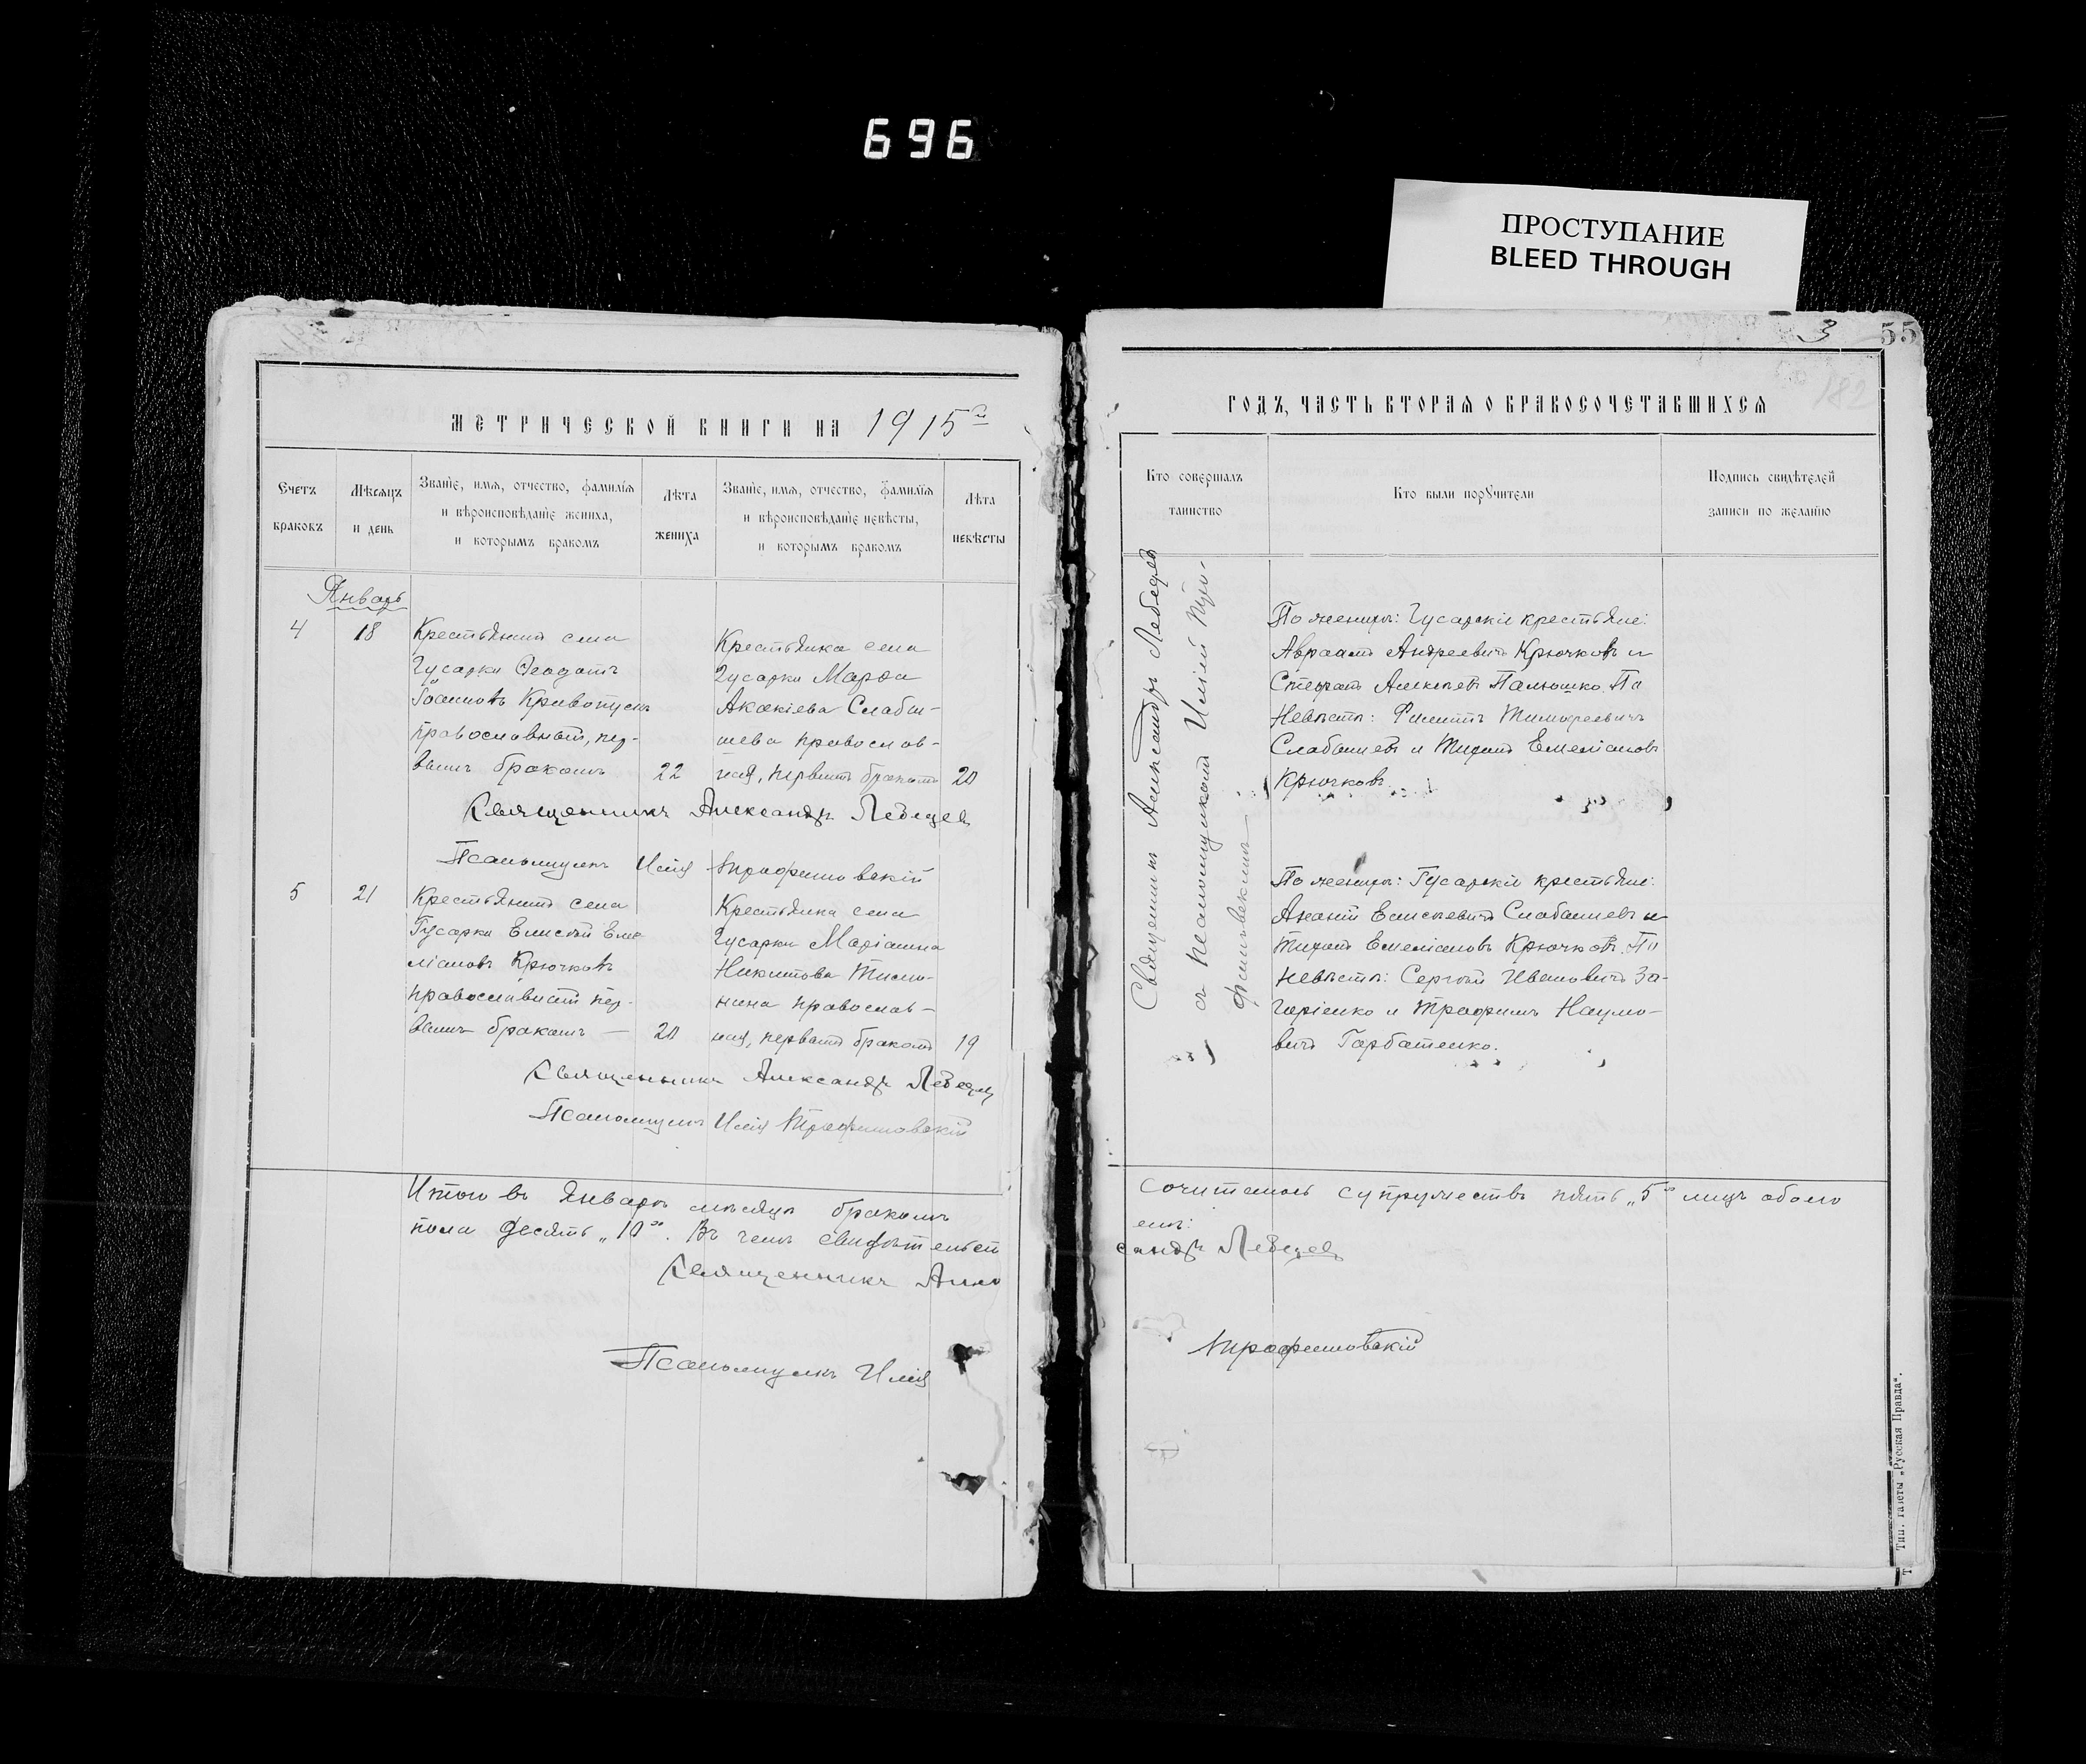 696
ПРОСТУПАНИЕ
BLEED THROUGH
3
55
182
МЕТРИЧЕСКОЙ КНИГИ НА 1915
Счетъ браковъ
Мѣсяцъ и день
Званїе, имя, отчество, фамилїя и вѣроисповѣданїе жениха, и которымъ бракомъ
Лѣта жениха
Званїе, имя, отчество, фамилїя и вѣроисповѣданїе невѣсты, и которымъ бракомъ
Лѣта невѣсты
Январь
4
18
Крестьянинъ села
Гусарки Ѳеодотъ
Іоанновъ Кривопуск
православный, пер-
вымъ бракомъ
22
Крестьянка села
Гусарки Марѳа
Акакіева Слабы-
шева православ-
ная, первымъ бракомъ
20
Священникъ Александръ Лебедев
Псаломщикъ Илія Трофимовскій
5
21
Крестьянинъ села
Гусарки Елисей Еме
ліановъ Крючковъ
православный пер-
вымъ бракомъ —
20
Крестьянка села
Гусарки Маріанна
Никитова
православ-
ная, первымъ бракомъ
19
Священникъ Александръ Лебедев
Псаломщикъ Илія Трофимовскій
Итого въ Январѣ мѣсяцѣ бракомъ
пола десять „10". Въ чемъ свидѣтельст
Священникъ Алек
Псаломщикъ Илія
ГОДЪ, ЧАСТЬ ВТОРАЯ О БРАКОСОЧЕТАВШИХСЯ
Кто совершалъ таинство
Кто были порꙋчители
Подпись свидѣтелей записи по желанїю
Священникъ Александръ Лебедев
съ псаломщикомъ Иліей Тро-
фимовскимъ —
По женихѣ: Гусарскіе крестьяне:
Авраамъ Андреевичъ Крючковъ и
Стефанъ Алексѣевъ Палюшко. По
Невѣстѣ: Филиппъ Тимофеевичъ
Слабышевъ и Тихонъ Емеліановъ
Крючковъ.
По женихѣ: Гусарскіе крестьяне:
Елисѣевичъ Слабышевъ и
Тихонъ Емеліановъ Крючковъ. По
Невѣстѣ: Сергѣй Ивановичъ За-
горіенко и Трофимъ Наумо-
вичъ Горбатенко.
сочиталось супружествъ пять „5" лицъ обоего
емъ:
сандръ Лебедев
Трофимовскій
Тип. газеты „Русская Правда".